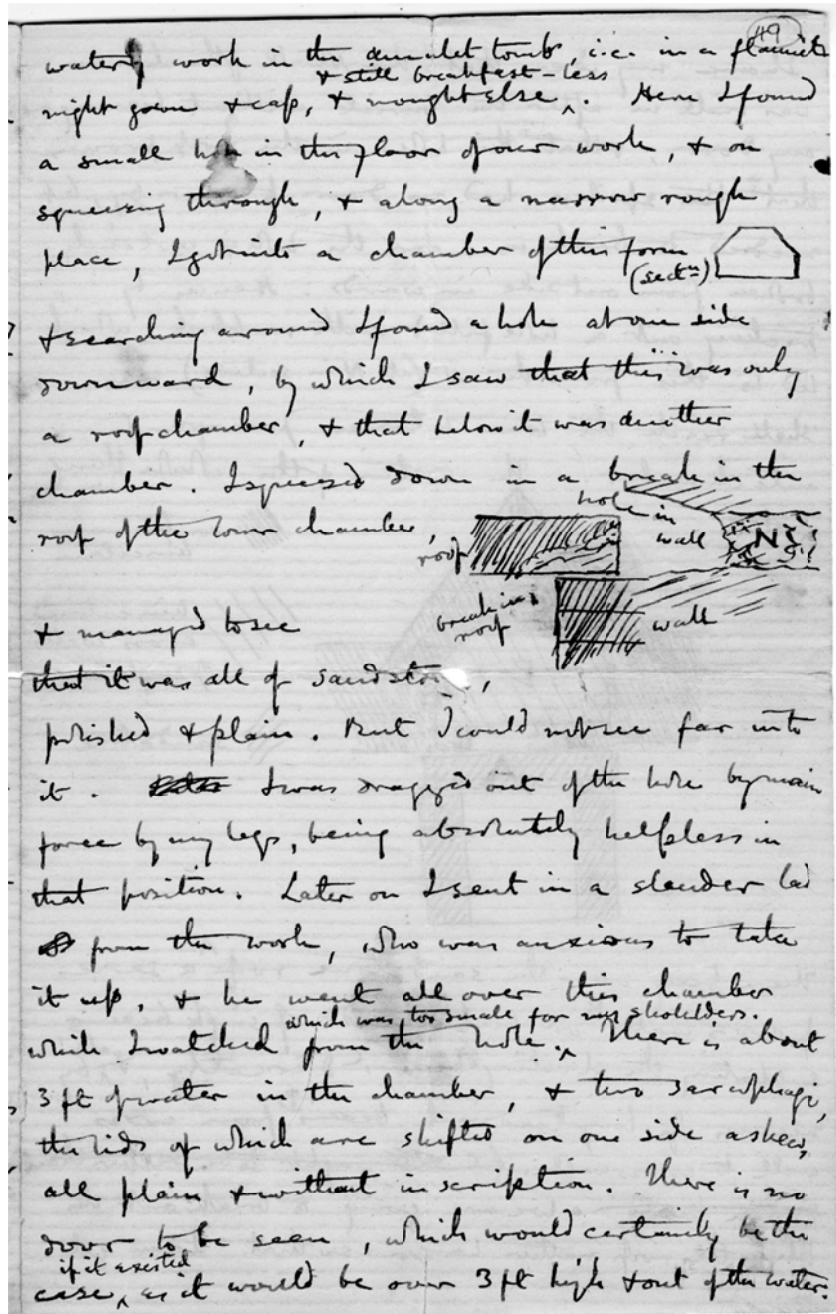 49
watery work in the amulet tomb, i.e. in a flannel
& still breakfast-less
night gown & cap, & nought else ^. Here I found
a small hole in the floor of our work, & on
squeezing through, & along a narrow rough
place, I got into a chamber of this form
(sectn)
& searching around I found a hole at one side
downward, by which I saw that this was only
a roof chamber, & that below it was another
chamber. I squeezed down in a break in the
roof of the lower chamber,
hole in
wall
N
roof
break in
roof
wall
& managed to see
that it was all of sandstone,
polished & plain. But I could not see far into
it. I was dragged out of the hole by main
force by my legs, being absolutely helpless in
that position. Later on I sent in a slender lad
from the work, who was anxious to take
it up, & he went all over this chamber
which was too small for my sholders.
while I watched from the hole ^. There is about
3 ft of water in the chamber, & two sarcophagi,
the lids of which are shifted on one side askew,
all plain & without inscription. There is no
door to be seen, which would certainly be the
if it existed
case ^, as it would be over 3 ft high & out of the water.